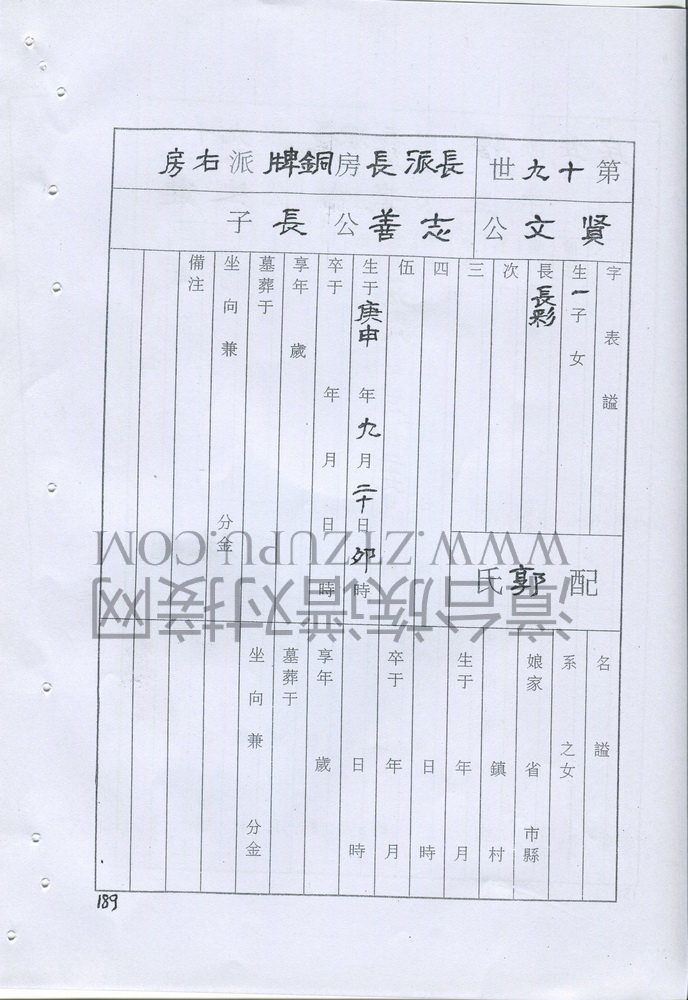 第十九世
長派長房銅牌派右房
賢文公
志善公長子
字表謚
生一子女
長長彩
次
三
四
伍
生于庚申年九月二十日卯時
卒于年月日時
享年歲
墓葬于
坐向兼分金
備注
配郭氏
名謚
系之女
娘家省市縣
鎮村
生于年月
日時
卒于年月
日時
享年歲
墓葬于
坐向兼分金
189
WWW.ZTZUPU.COM
漳台族谱对接网